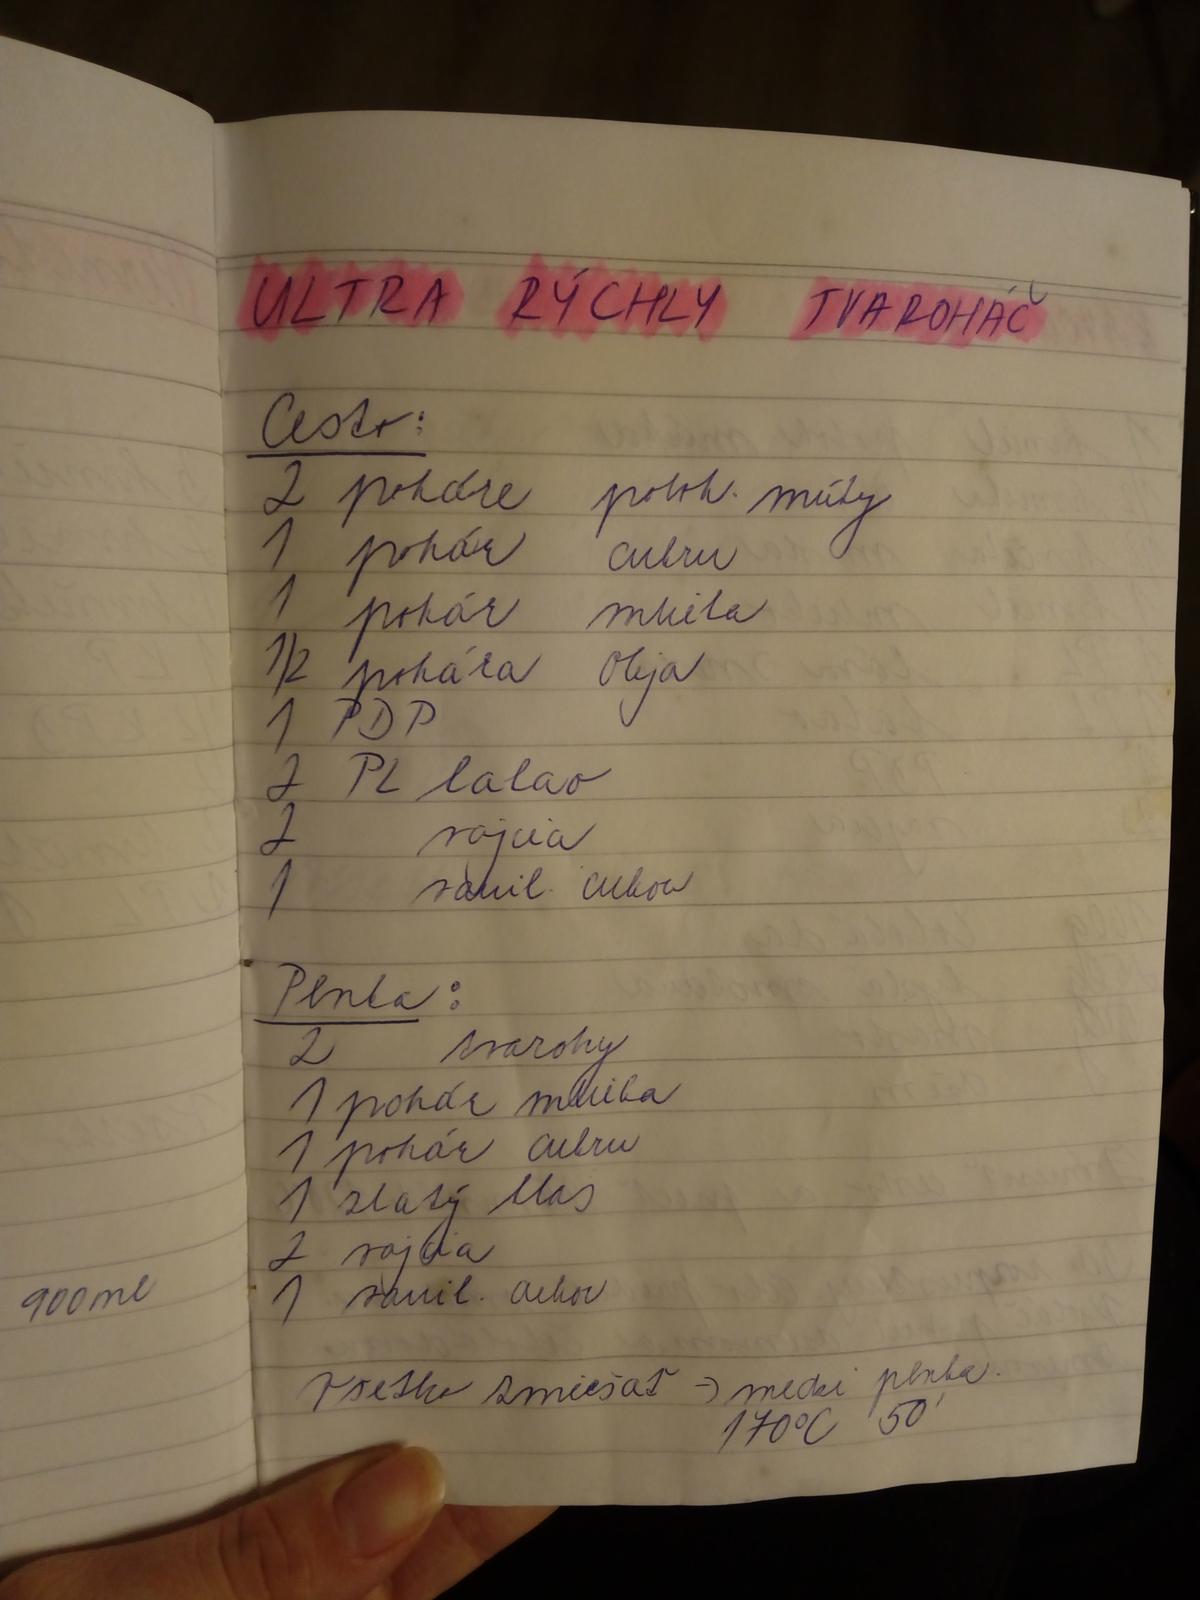 ULTRA RÝCHLY TVAROHÁČ
Cesto:
2 poháre poloh. múky
1 pohár cukru
1 pohár mlieka
1/2 pohára oleja
1 PDP
2 PL kakao
2 vajcia
1 vanil. cukor
Plnka:
2 tvarohy
1 pohár mlieka
1 pohár cukru
1 zlatý klas
2 vajcia
1 vanil. cukor
Všetko zmiešať → medzi plnka.
170°C 50'
900ml